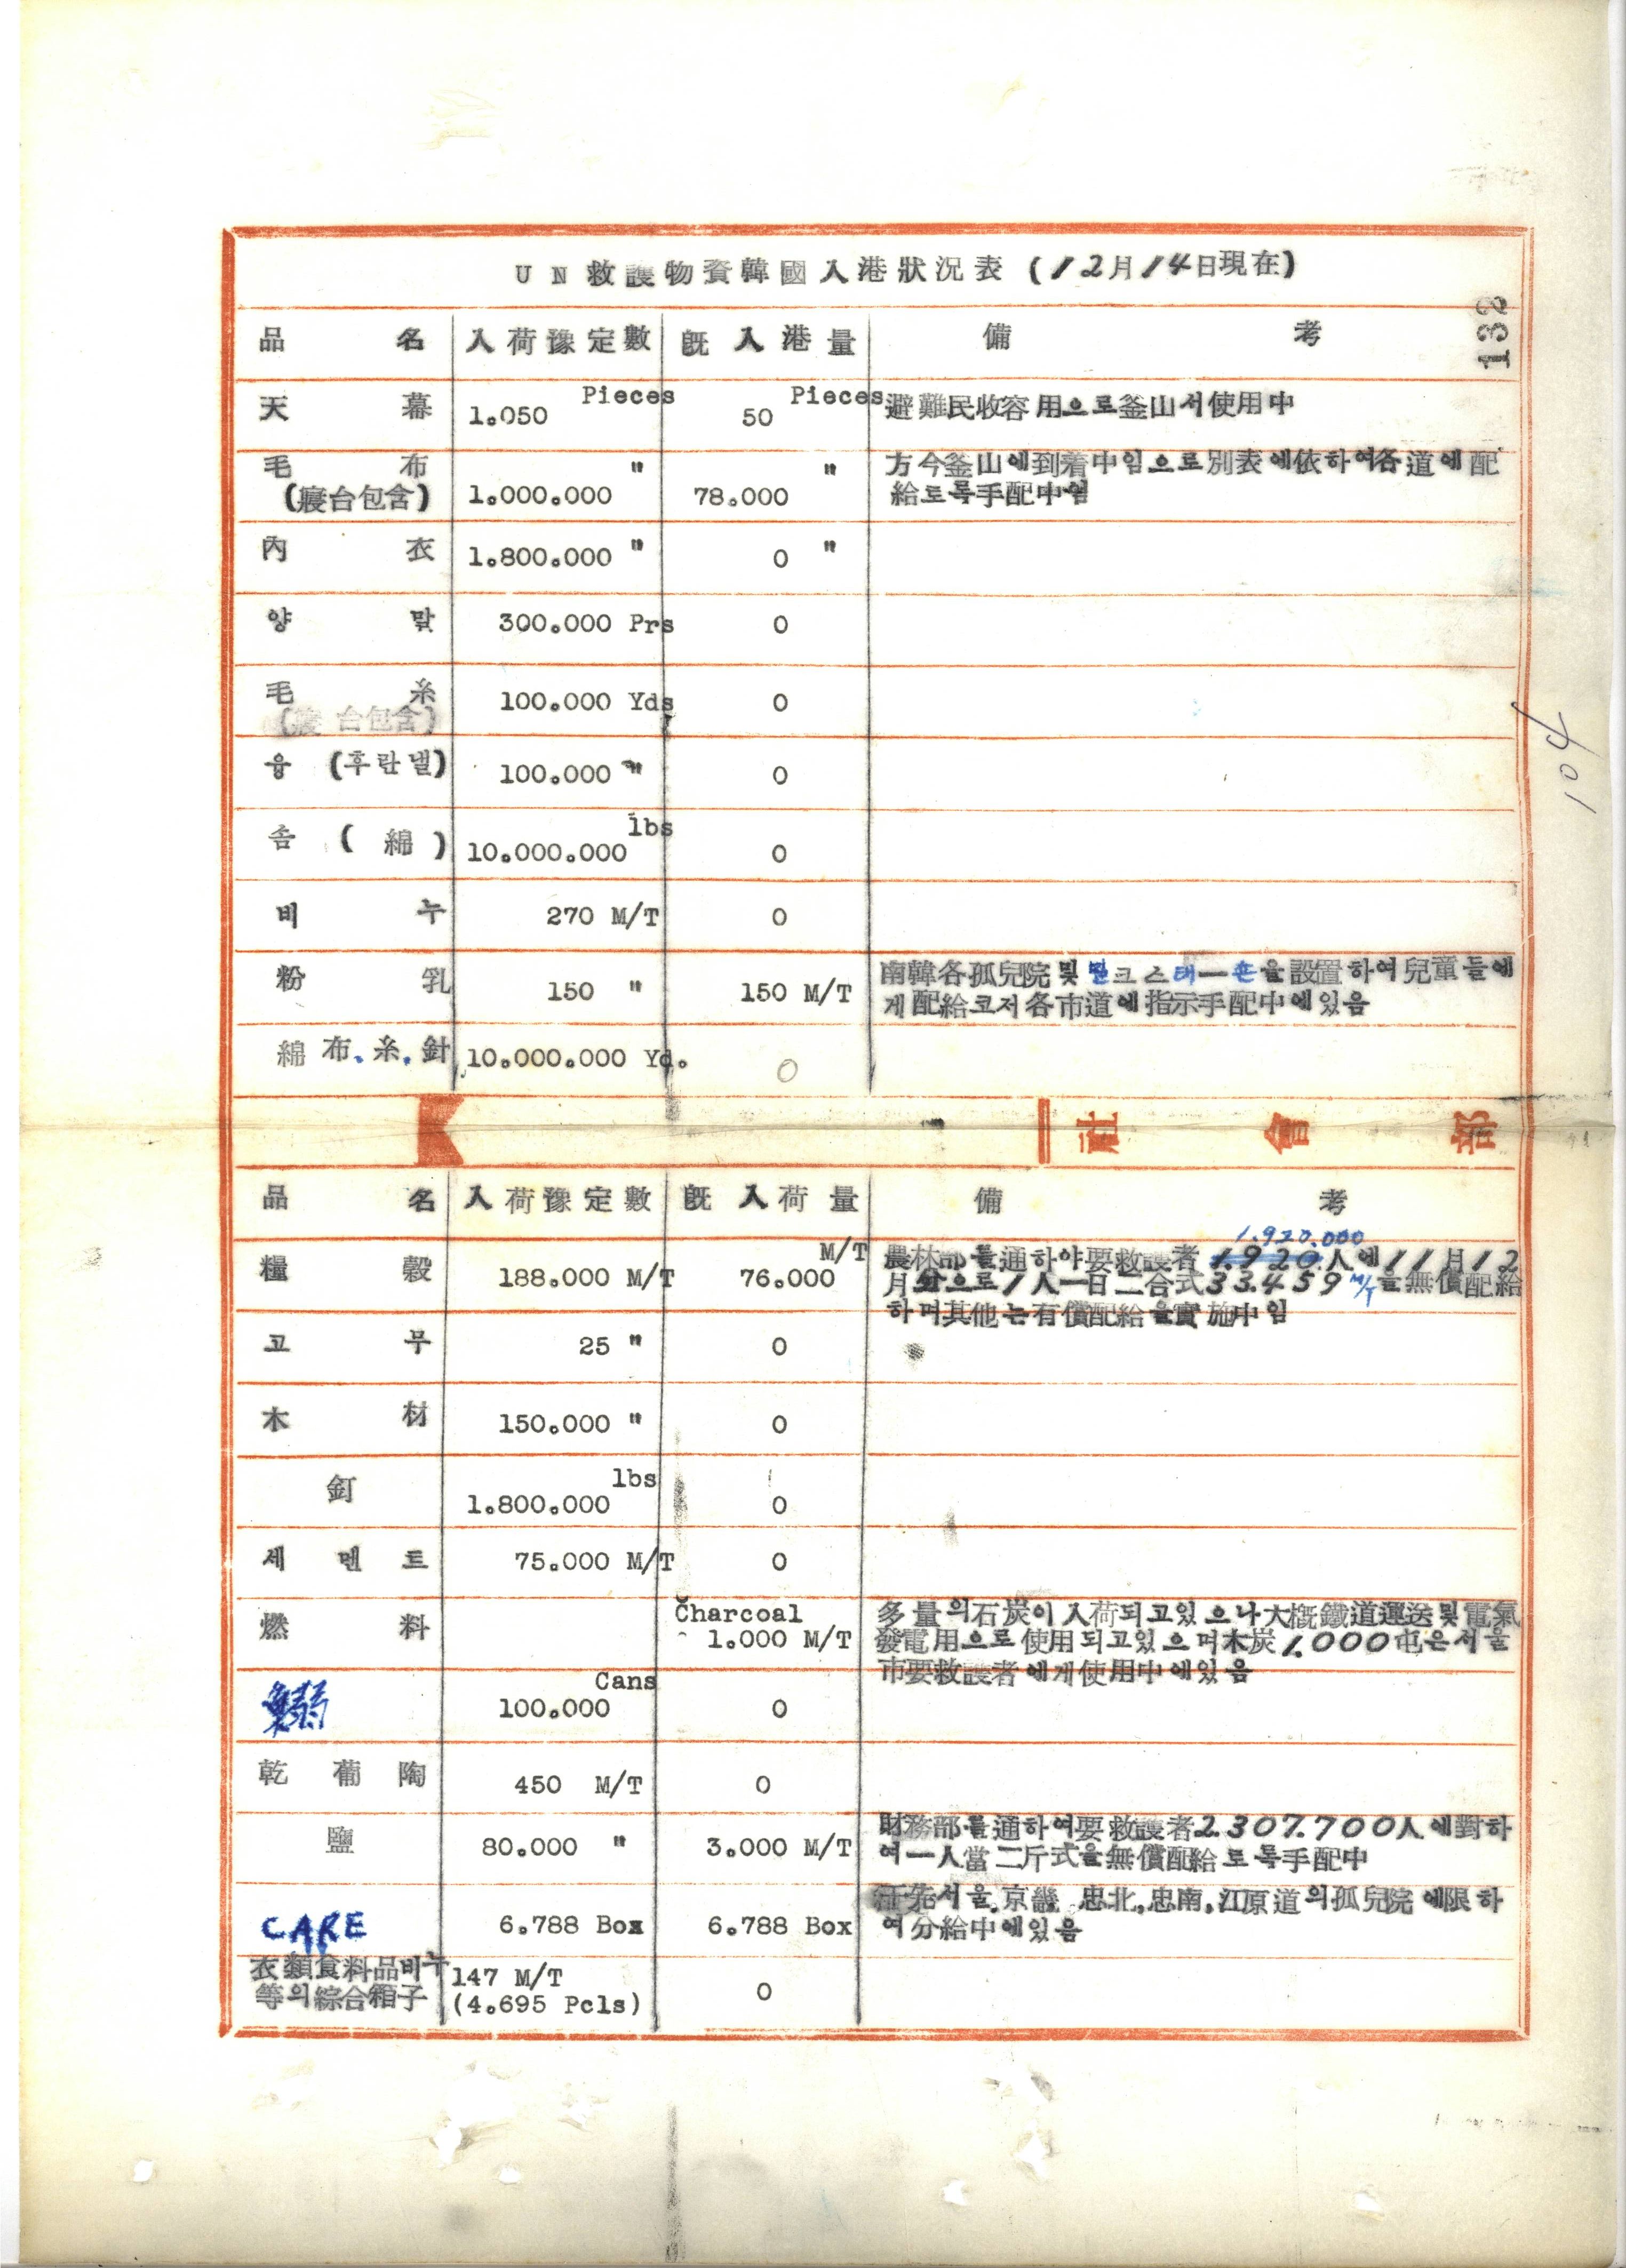 UN救護物資韓國入港狀況表 (12月14日現在)
132
品 名 入荷豫定數 旣入港量 備 考
天 幕 1.050 Pieces 50 Pieces 避難民收容用으로釜山서使用中
毛 布 " " 方今釜山에到着中임으로別表에依하여各道에配
(寢台包含) 1.000.000 78.000 給토록手配中임
內 衣 1.800.000 " 0 "
양 말 300.000 Prs 0
毛 糸 100.000 Yds 0
(寢台包含)
융 (후란넬) 100.000 " 0
솜 (綿) 10.000.000 lbs 0
비 누 270 M/T 0
粉 乳 150 " 150 M/T 南韓各孤兒院및밀크스테—숀을設置하여兒童들에
게配給코저各市道에指示手配中에있음
綿布.糸.針 10.000.000 Yd. 0
社 會 部
品 名 入荷豫定數 旣入荷量 備 考
1.920.000
糧 穀 188.000 M/T 76.000 M/T 農林部를通하야要救護者1.920人에11月12
月分으로1人一日二合式33.459M/T을無償配給
하며其他는有償配給을實施中임
고 무 25 " 0
木 材 150.000 " 0
釘 1.800.000 lbs 0
세 멘 트 75.000 M/T 0
燃 料 Charcoal 多量의石炭이入荷되고있으나大槪鐵道運送및電氣
1.000 M/T 發電用으로使用되고있으며木炭1.000屯은서울
市要救護者에게使用中에있음
100.000 Cans 0
乾葡陶 450 M/T 0
鹽 80.000 " 3.000 M/T 財務部를通하여要救護者2.307.700人에對하
여一人當二斤式을無償配給토록手配中
CARE 6.788 Box 6.788 Box 서울.京畿.忠北.忠南.江原道의孤兒院에限하
여分給中에있음
衣類食料品비누 147 M/T
等의綜合箱子 (4.695 Pcls) 0